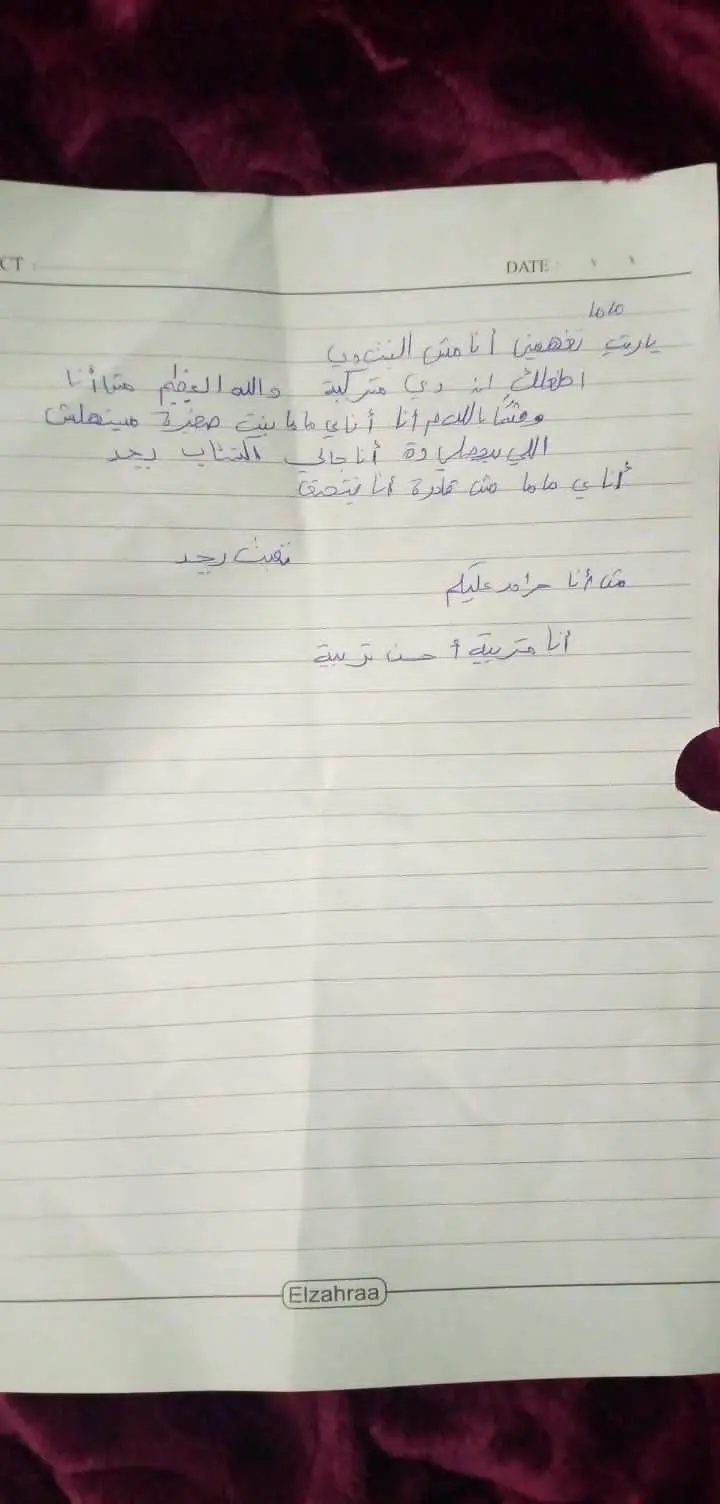 CT :
DATE : \ \
ماما
ياريت تفهميني أنا مش البنت دي
دي متركبة والله العظيم مش أنا
وقسمًا بالله م أنا أنا يا ماما بنت صغيرة مينهلش
اللي بيحصلي دة أنا جالي اكتئاب بجد
أنا يا ماما مش قادرة أنا بتخنق
تعبت بجد
مش أنا حرام عليكم
أنا متربية أحسن تربية
Elzahraa